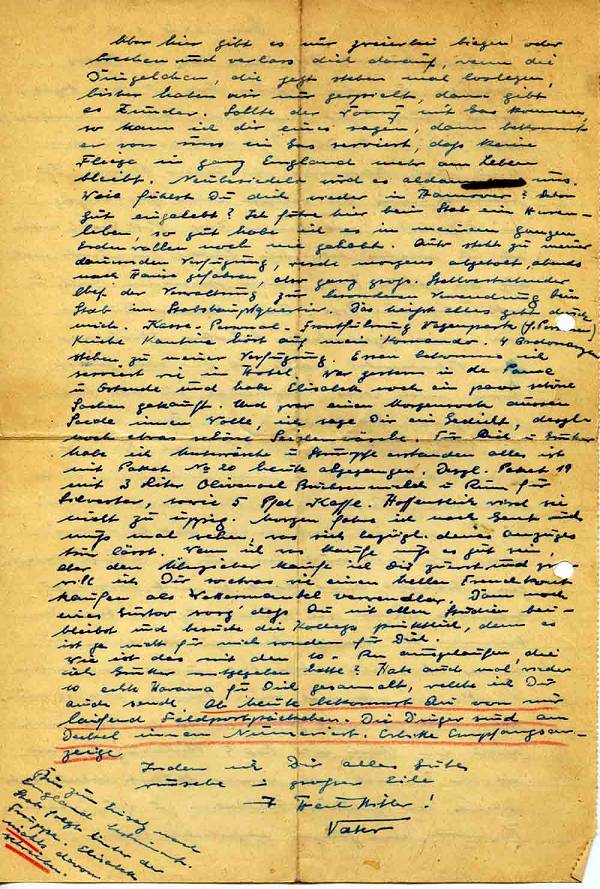 Aber hier gibt es nur zweierlei biegen oder
brechen und verlass dich darauf, wenn die
Dingelchen, die jetzt stehen mal loslegen,
bisher haben wir nur gespielt, dann gibt
es Zunder. Sollte der Tommy mit Gas kommen,
so kann ich dir eines sagen, dann bekommt
er von uns ein Gas serviert, dass keine
Fliege in ganz England mehr am Leben
bleibt. wird es uns.
Wie fühlst Du dich wieder in Hannover? Schon
gut eingelebt? Ich führe hier beim Stab ein Herren-
leben, so gut habe ich es in meinem ganzen
Erdenwallen noch nie gehabt. Auto steht zu meiner
dauernden Verfügung, werde morgens abgeholt, abends
nach Hause gefahren, also ganz gross. Stellvertretender
Chef der Verwaltung zur besonderen Verwendung beim
Stab im Stabshauptquartier. Das heisst alles geht durch
mich. Kasse, Personal, Frontführung Wagenpark
Küche Kantine hört auf mein Komando. 4 Ordonanzen
stehen zu meiner Verfügung. Essen bekomme ich
serviert wie im Hotel. War gestern in de Panne
u Ostende und habe Elisabeth noch ein paar schöne
Sachen gekauft. Und zwar einen Morgenrock aussen
Seide innen Wolle, ich sage Dir ein Gedicht, desgl.
noch etwas schöne Seidenwäsche. Für Dich u
habe ich u Strümpfe erstanden alles ist
mit Paket No 20 heute abgegangen. Desgl. Paket 19
mit 3 Liter Olivenoel u Rum für
Silvester, sowie 5 Pfd Kaffe. Hoffentlich wird sie
nicht zu üppig. Morgen fahre ich nach Gent und
muss mal sehen, was sich bezügl. deines Anzuges
tun lässt. Wenn ich was kaufe muss es gut sein,
aber den kaufe ich Dir zuerst und zwar
will ich Dir so etwas wie einen hellen Trenchkoat
kaufen als Wettermantel verwendbar. Dann noch
eines Gustav sorg' dass Du mit allen Studien bei-
bleibst und besuche die Kollegs pünktlich, denn es
ist ja nicht für mich sondern für Dich.
Wie ist das mit den 10.- Rm ausgelaufen die
ich mitgegeben hatte? Habe auch mal wieder
10 echte Havana für Dich gesammelt, welche ich Dir
auch sende. Ab heute bekommst Du von mir
laufend Feldpostpäckchen. Die Dinger sind am
Deckel innen Numeriert. Erbitte Empfangsan-
zeige
Indem ich Dir alles Gute
wünsche in grosser Eile
Heil Hitler!
Vater
Bin zum Einsatz nach
England bestimmt.
Stab folgt hinter der
Truppe. Elisabeth
nichts davon
schreiben.